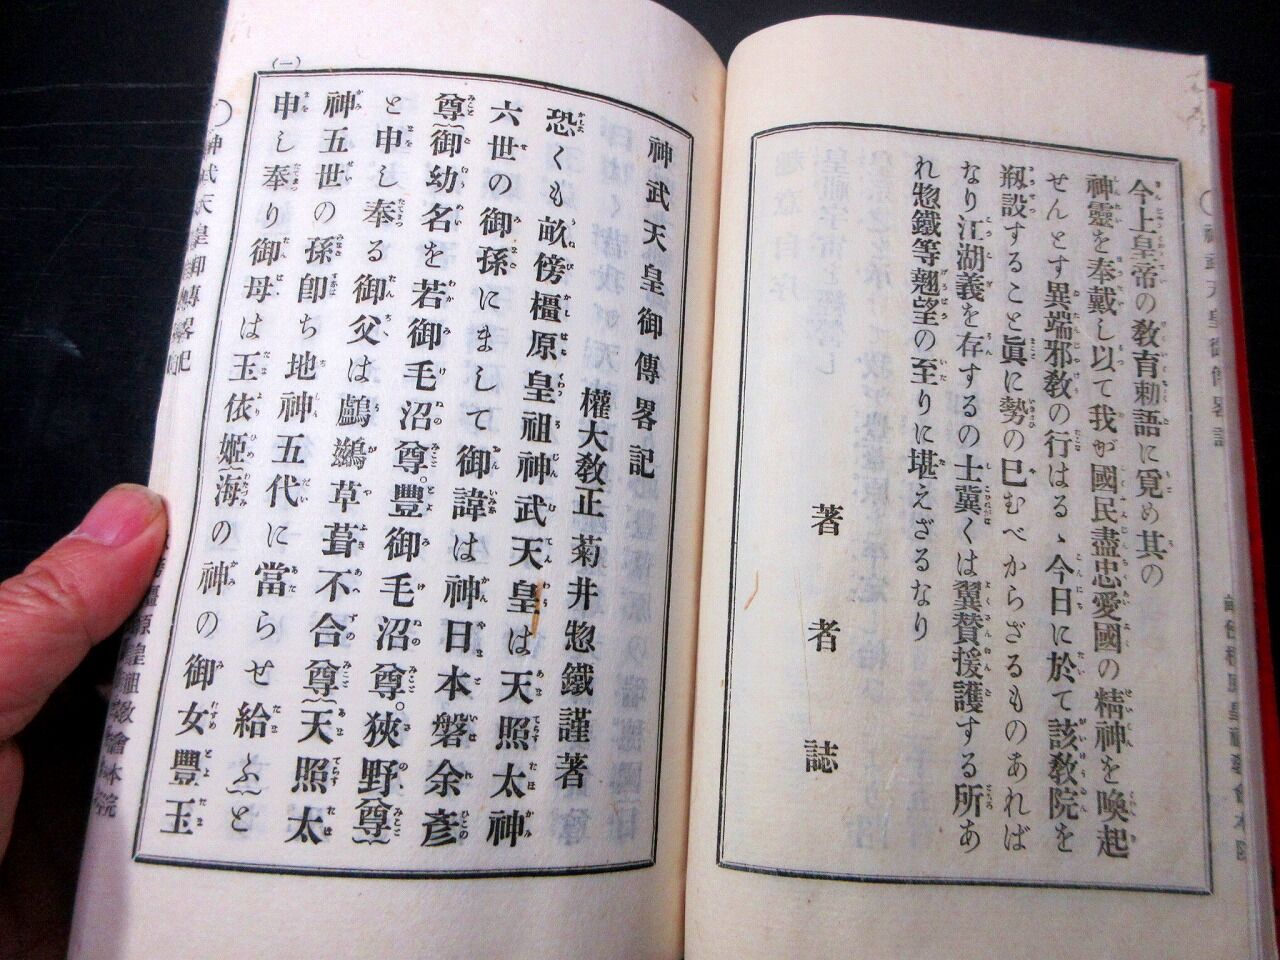 今上皇帝の教育勅語に覓め其の
神靈を奉戴し以て我が國民盡忠愛國の精神を喚起
せんとす異端邪教の行はるゝ今日に於て該教院を
剏設すること眞に勢の巳むべからざるものあれば
なり江湖義を存するの士冀くは翼賛援護する所あ
れ惣鐵等翹望の至りに堪えざるなり
著者誌
神武天皇御傳畧記
權大教正菊井惣鐵謹著
恐くも畝傍橿原皇祖神武天皇は天照太神
六世の御孫にまして御諱は神日本磐余彦
尊御幼名を若御毛沼尊。豐御毛沼尊。狹野尊
と申し奉る御父は鸕鷀草葺不合尊天照太
神五世の孫卽ち地神五代に當らせ給ふと
申し奉り御母は玉依姫海の神の御女豐玉
(一)
〇神武天皇御傳畧記
橿原皇祖教會本院